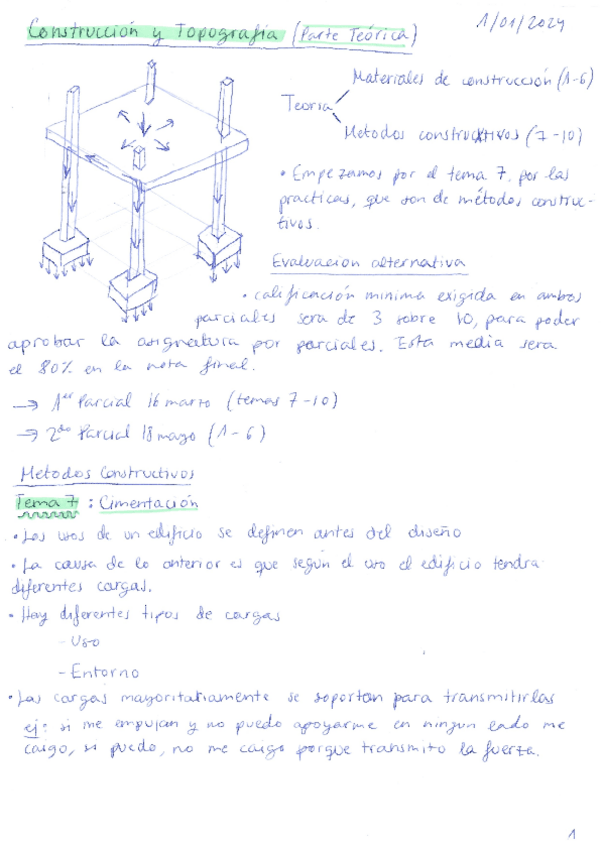 Construcción y Topografía (Parte Teórica)
1/01/2024
Materiales de construcción (1-6)
Teoria
Metodos constructivos (7-10)
• Empezamos por el tema 7. por las
practicas, que son de métodos construc-
tivos.
Evaluacion alternativa
• calificación minima exigida en ambos
parciales sera de 3 sobre 10, para poder
aprobar la asignatura por parciales. Esta media sera
el 80% en la nota final.
→ 1er Parcial 16 marzo (temas 7-10)
→ 2do Parcial 18 mayo (1-6)
Metodos Constructivos
Tema 7 : Cimentación
• Los usos de un edificio se definen antes del diseño
• La causa de lo anterior es que según el uso el edificio tendra
diferentes cargas.
• Hay diferentes tipos de cargas
- Uso
- Entorno
• Las cargas mayoritariamente se soportan para transmitirlas
ej: si me empujan y no puedo apoyarme en ningun lado me
caigo, si puedo, no me caigo porque transmito la fuerza.
1